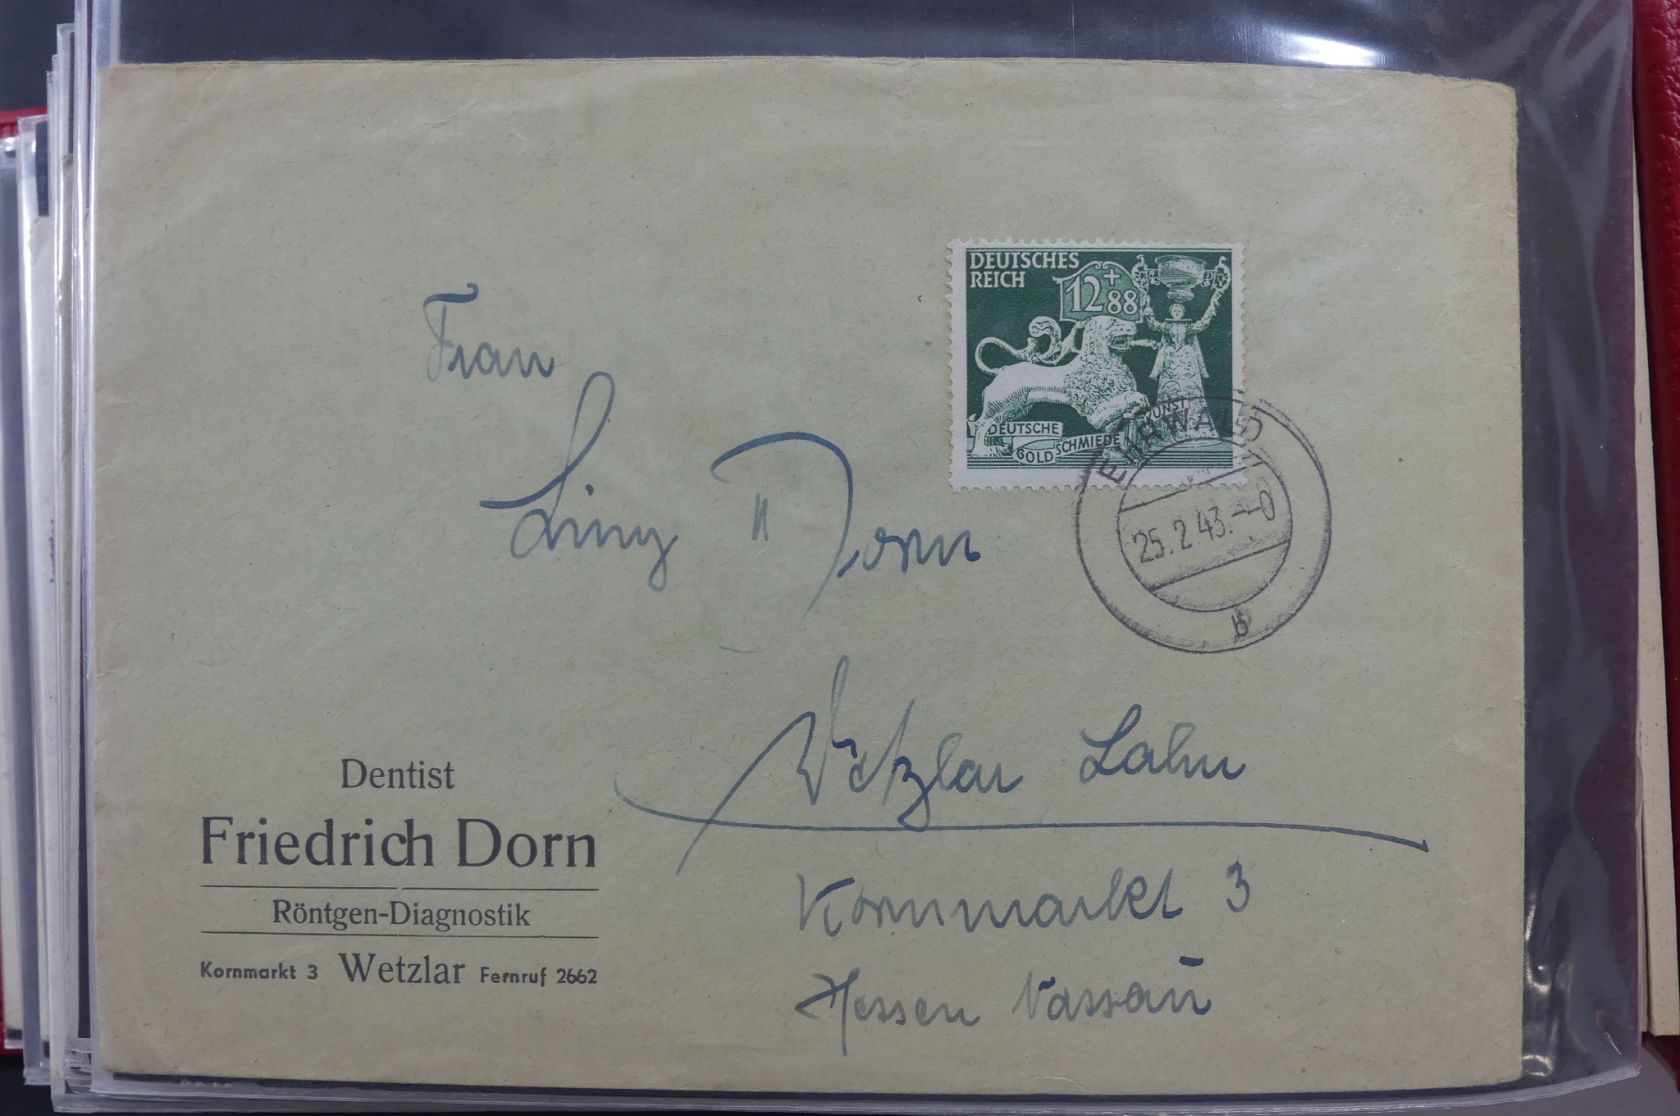 DEUTSCHES
REICH
12+88
DEUTSCHE
GOLDSCHMIEDE
KUNST
EHRWALD
25.2.43.
b
Frau
Dorn
Wetzlar Lahn
Kornmarkt 3
Hessen Nassau
Dentist
Friedrich Dorn
Röntgen-Diagnostik
Kornmarkt 3 Wetzlar Fernruf 2662